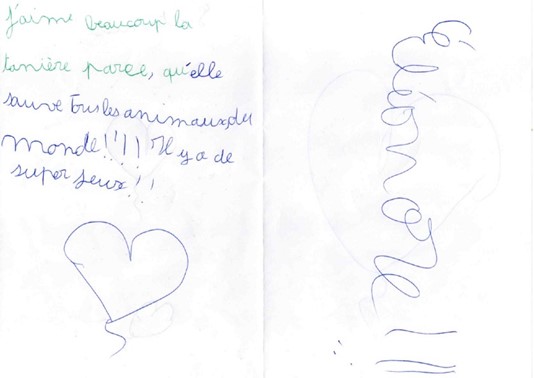 j'aime beaucoup la
tanière parce, qu'elle
sauve tous les animaux du
monde!!!! Il y a de
super jeux!!
Éléonore!!!